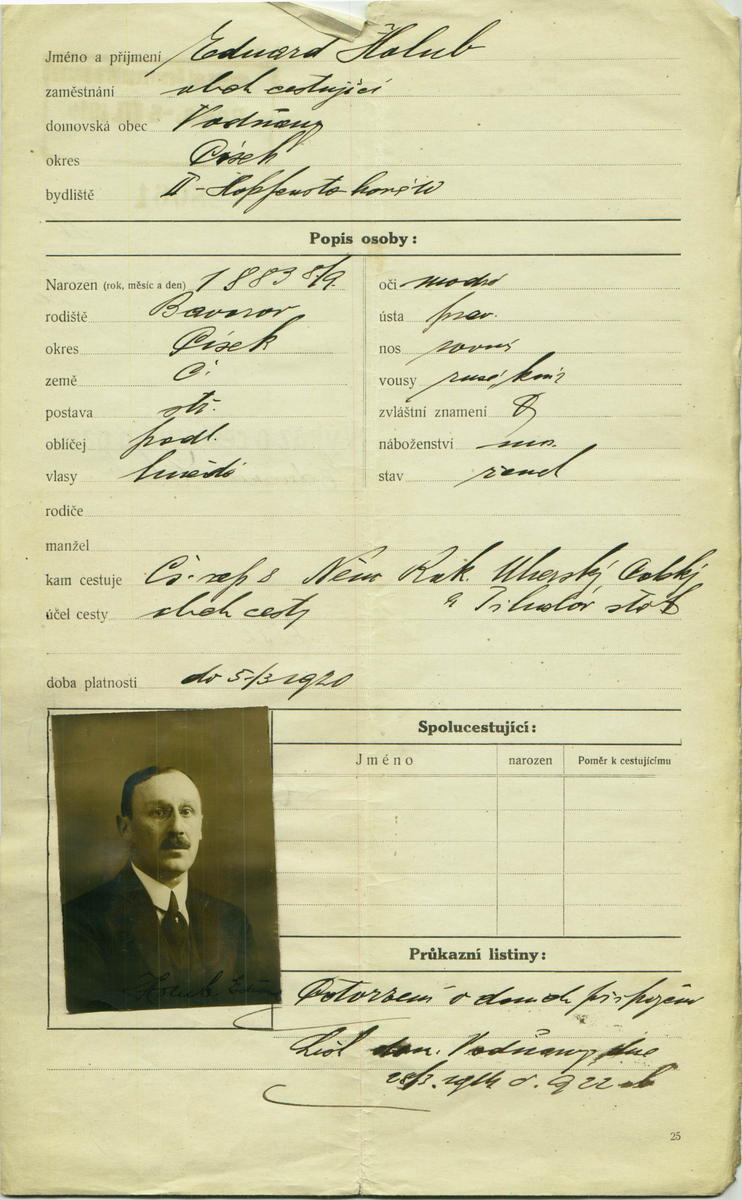 Jméno a příjmení Eduard Holub
zaměstnání obch cestující
domovská obec Vodňany
okres Písek
bydliště II-
Popis osoby:
Narozen (rok, měsíc a den) 1883 8/9.
rodiště Bavorov
okres Písek
země Č.
postava stř.
obličej podl.
vlasy hnědé
oči modré
ústa prav.
nos rovný
vousy knír
zvláštní znamení
náboženství
stav ženat
rodiče
manžel
kam cestuje Čs. rep Něm Rak. Uherský Polský
účel cesty obch cesty a stát
doba platnosti do 5/3 1920
Spolucestující:
Jméno narozen Poměr k cestujícímu
Průkazní listiny:
Holub
Potvrzení o
List dom. Vodňany dne
28/3. č. 922
25